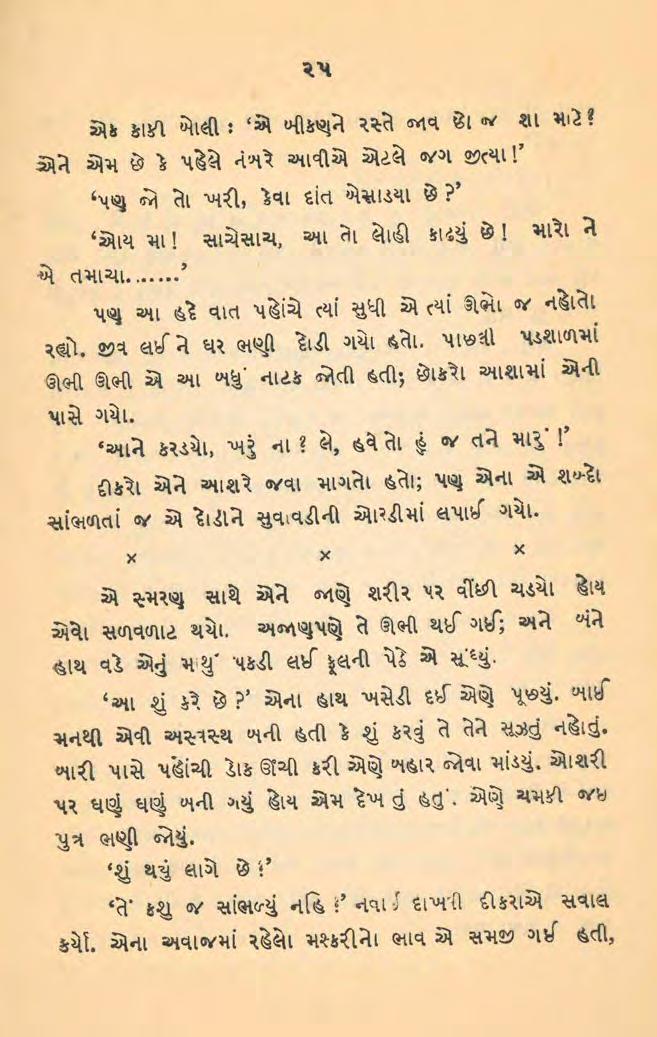 ૨૫
એક કાકી બોલી : ‘એ બીકણને રસ્તે જાવ છો જ શા માટે?
એને એમ છે કે પહેલે નંબરે આવીએ એટલે જગ જીત્યા !’
‘પણ જો તો ખરી, કેવા દાંત બેસાડયા છે ?’
‘ઓય મા ! સાચેસાચ, આ તો લોહી કાઢયું છે ! મારો ને
બે તમાચા.......’
પણ આ હદે વાત પહોંચે ત્યાં સુધી એ ત્યાં ઊભો જ નહોતો
રહ્યો. જીવ લઈ ને ઘર ભણી દોડી ગયો હતો. પાછલી પડશાળમાં
ઊભી ઊભી એ આ બધું નાટક જોતી હતી; છોકરો આશામાં એની
પાસે ગયો.
‘આને કરડયો, ખરું ના ? લે, હવે તો હું જ તને મારું !’
દીકરો એને આશરે જવા માગતો હતો; પણ એના એ શબ્દો
સાંભળતાં જ એ દોડીને સુવાવડીની ઓરડીમાં લપાઈ ગયો.
× × ×
એ સ્મરણ સાથે એને જાણે શરીર પર વીંછી ચડયો હોય
એવો સળવળાટ થયો. અજાણપણે તે ઊભી થઈ ગઈ; અને બંને
હાથ વડે એનું માથું પકડી લઈ ફૂલની પેઠે એ સૂંઘ્યું.
‘આ શું કરે છે ?’ એના હાથ ખસેડી દઈ એણે પૂછયું. બાઈ
મનથી એવી અસ્ત્રસ્થ બની હતી કે શું કરવું તે તેને સૂઝતું નહોતું.
બારી પાસે પહોંચી ડોક ઊંચી કરી એણે બહાર જોવા માંડયું. ઓશરી
પર ઘણું ઘણું બની ગયું હોય એમ દેખતું હતું. એણે ચમકી જઇ
પુત્ર ભણી જોયું.
‘શું થયું લાગે છે ?’
‘તેં કશુ જ સાંભળ્યું નહિ ?’ નવાઈ દાખવી દીકરાએ સવાલ
કર્યો. એના અવાજમાં રહેલો મશ્કરીનો ભાવ એ સમજી ગઈ હતી,